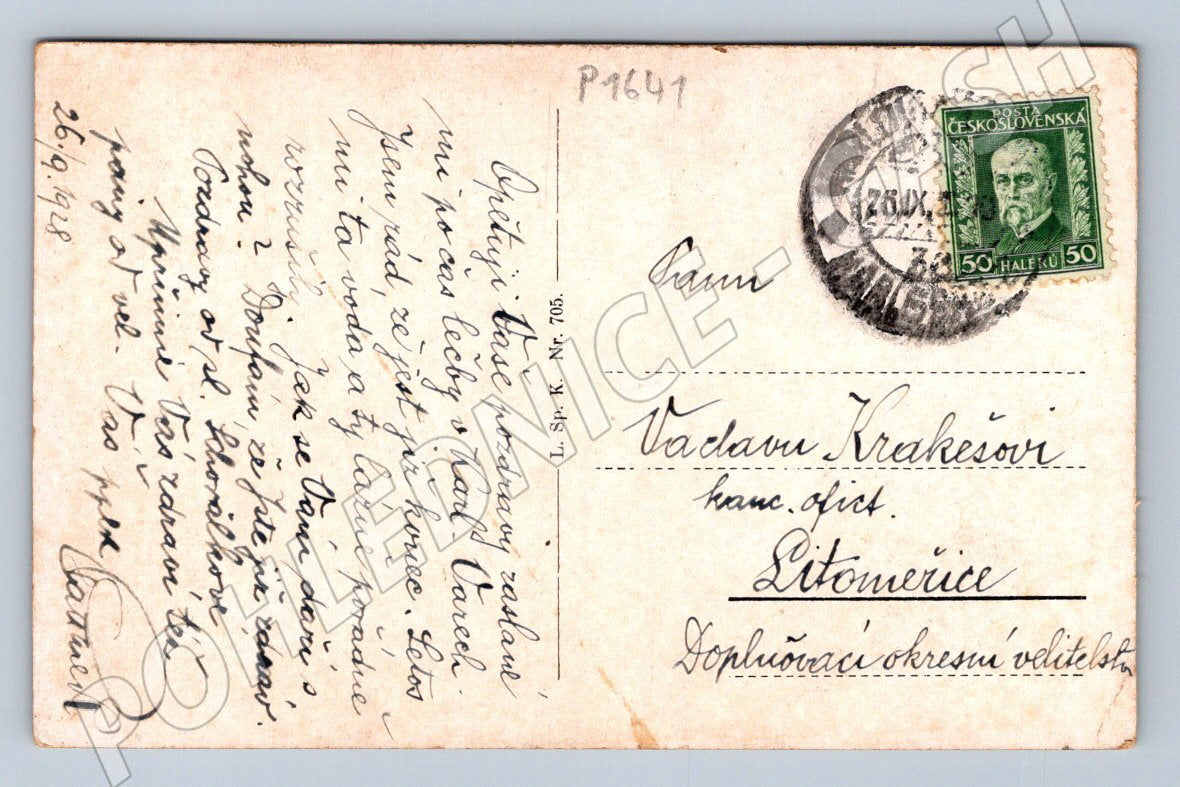 P1641
POŠTA
ČESKOSLOVENSKÁ
50 HALÉŘŮ 50
26.IX.
Opětuji Vaše pozdravy zaslané
mi po čas léčby v Karl. Varech.
Jsem rád, že jest již konec. Letos
mi ta voda a ty lázně pořádně
rozrušily. Jak se Vám daří s
nohou? Doufám, že jste již zdráv.
Pozdravy od sl. Schorálkove
Upřímně Vás zdraví též
paing od vel. Váš
26./9. 1928
L. Sp. K. Nr. 705.
Panu
Vaclavu Krakešovi
kanc. ofict.
Litoměřice
Doplňovací okresní velitelstv
POHLEDNICE-